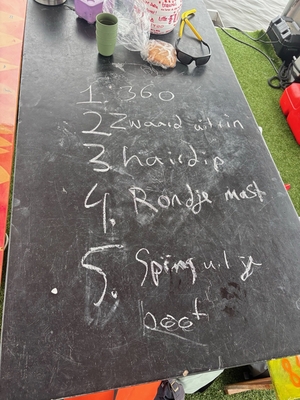 1. 360
2 Zwaard uit in
3 hairdip
4. Rondje mast
5. Spring uit je
boot